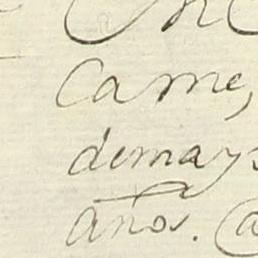 Carne,
demays
años.